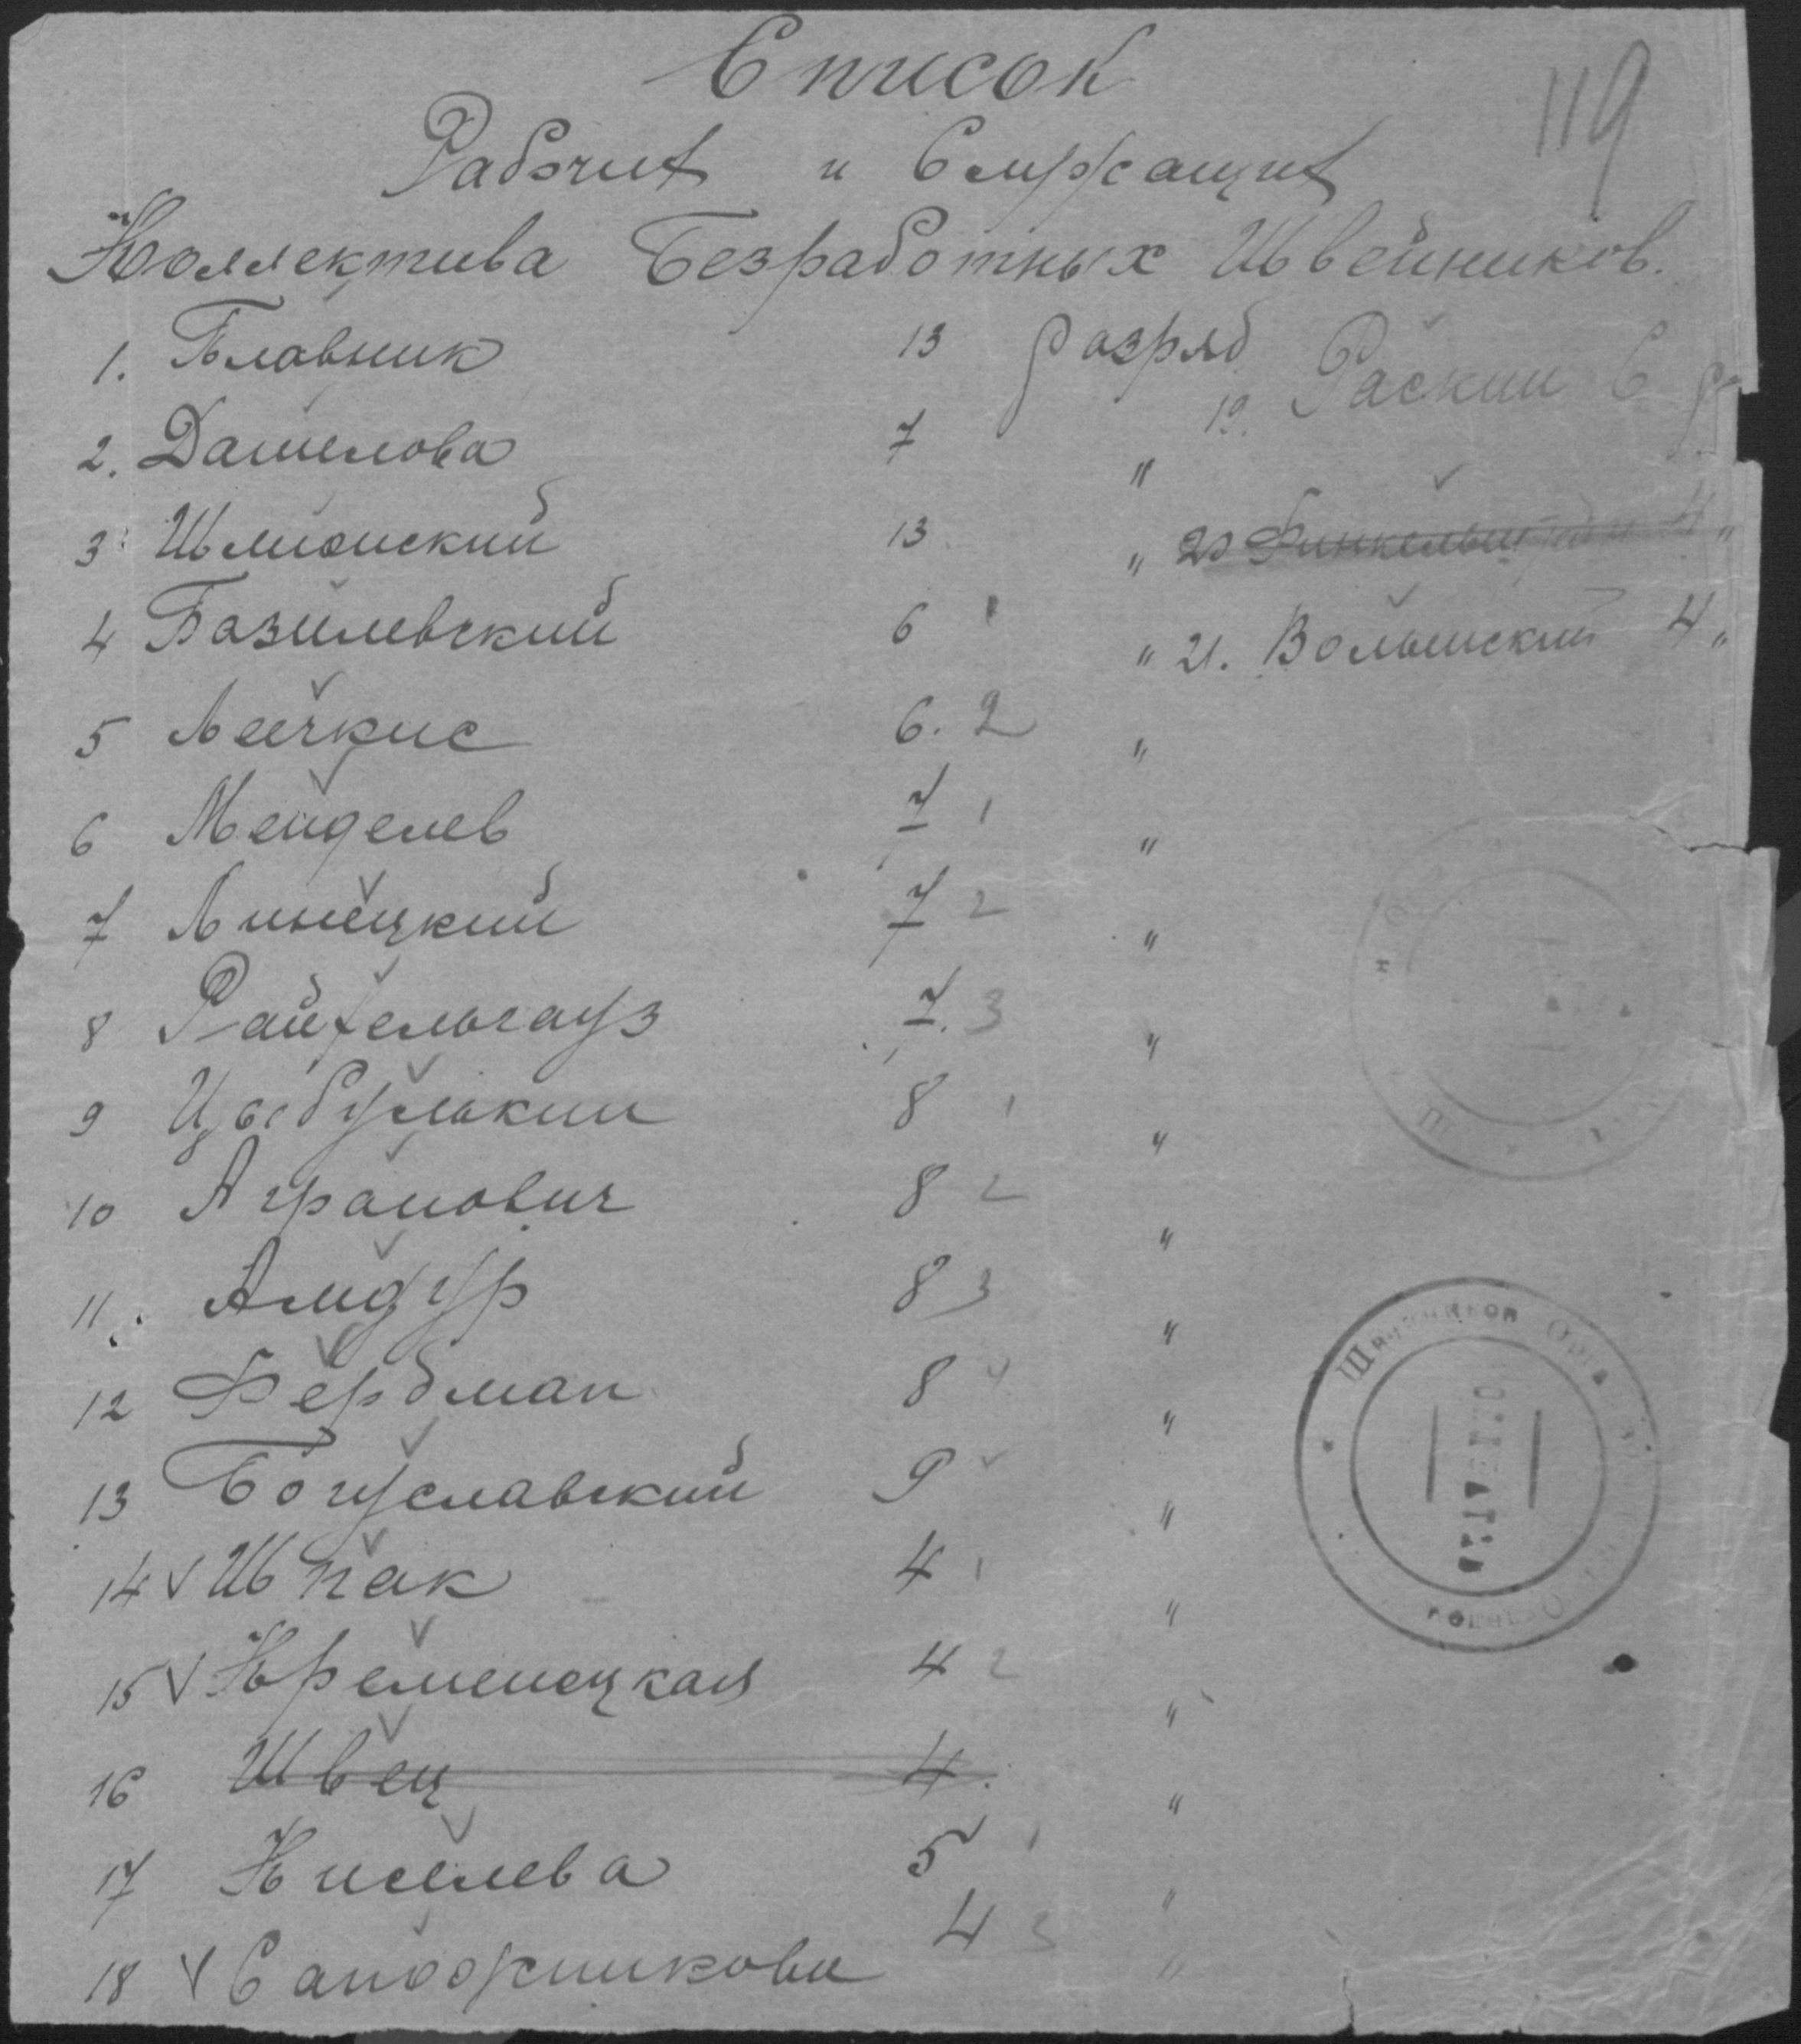 119
Список
Рабочих и Служащих
Коллектива Безработных Швейников.
1. Главник 13 разряд
2. Данилова 7 "
3 Шлионский 13 "
4 Базилевский 6 "
5 Лейкис 6. 2 "
6 Мейделев 7 1 "
7 Линецкий 7 2 "
8 Райхельгауз 7. 3 "
9 Цыбулькин 8 1 "
10 Агранович 8 2 "
11. Амдур 8 3 "
12 Фербман 8 4 "
13 Богуславский 9 "
14 Шпак 4 1 "
15 Кременецкая 4 2 "
16 Швец 4. "
17 Киселева 5 "
18 Сапожникова 4 3 "
19. Раскин 6 р
20 Финкельштейн 4 "
21. Волынский 4 "